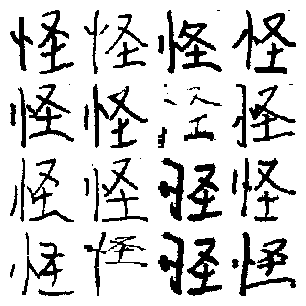 怪怪怪怪
怪怪怪怪
怪怪怪怪
怪怪怪怪